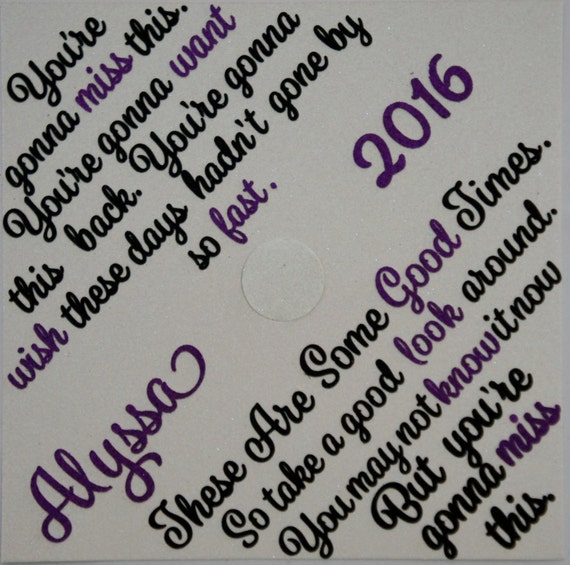 You're
gonna miss this.
You're gonna want
this back. You're gonna
wish these days hadn't gone by
so fast.
2016
Alyssa
These Are Some Good Times.
So take a good look around.
You may not know it now
But you're
gonna miss
this.